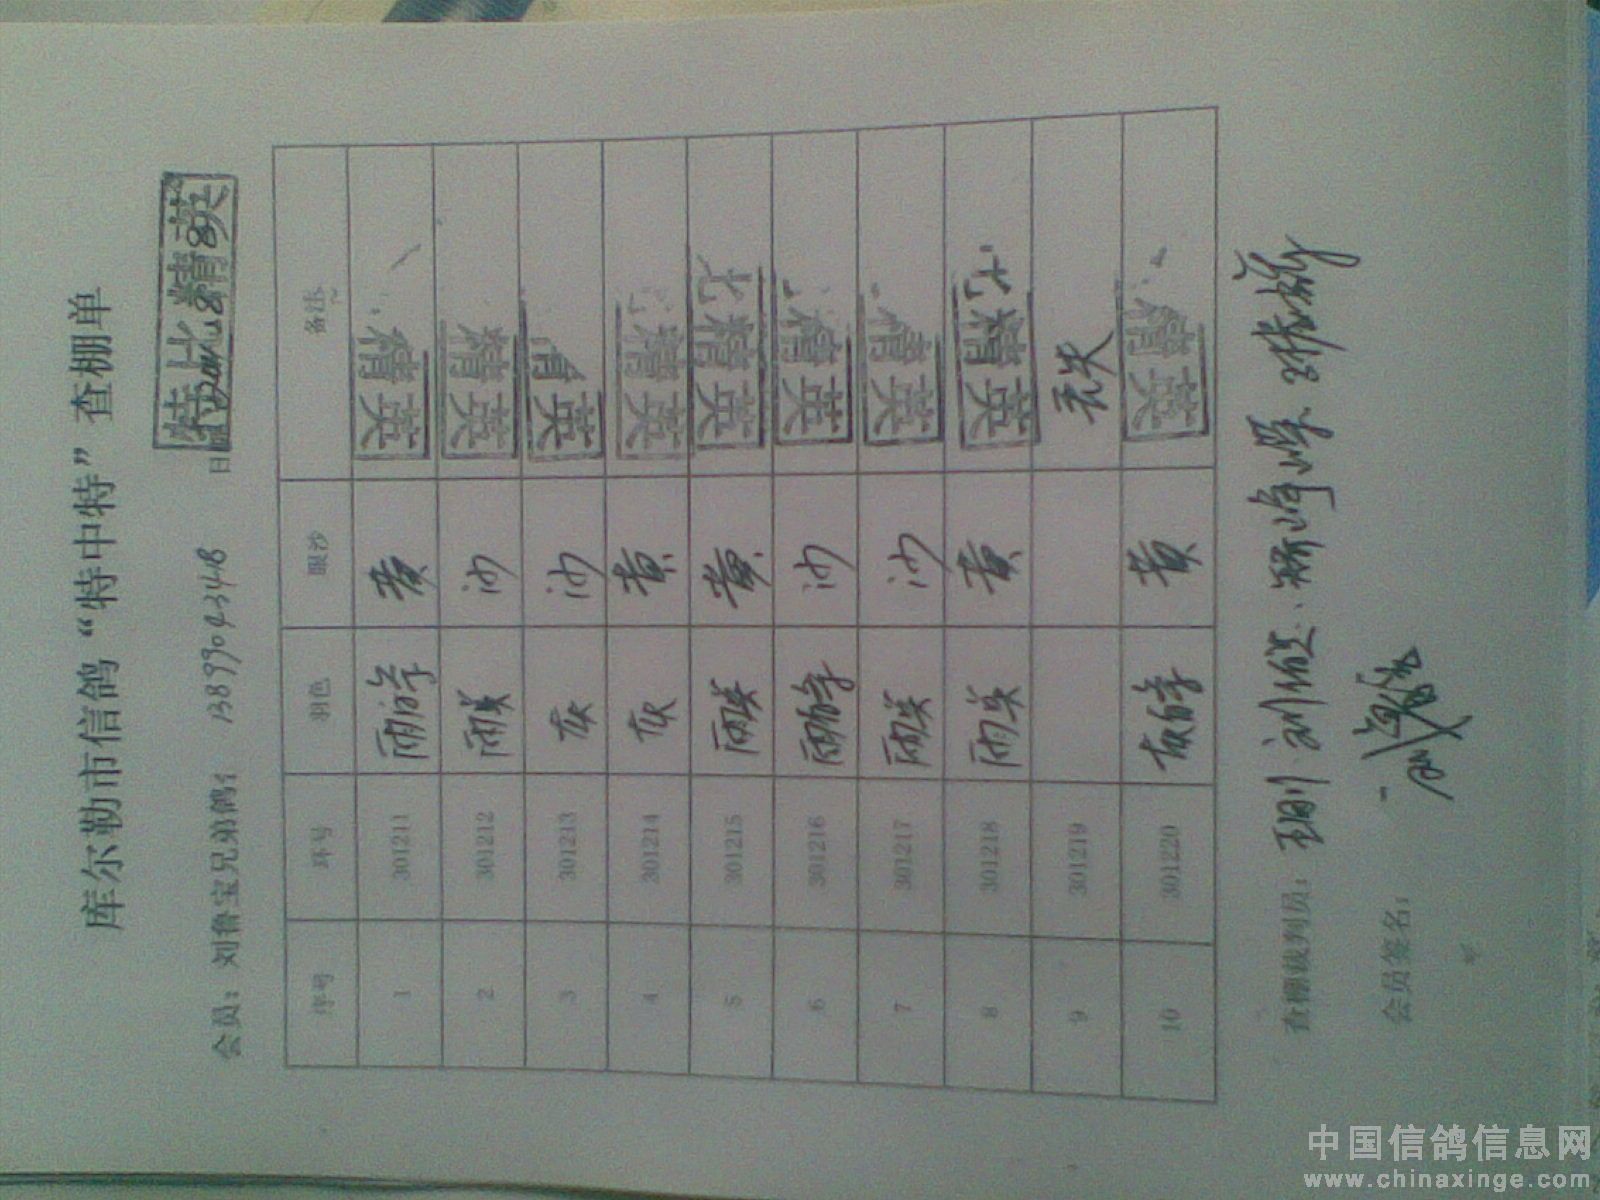 库尔勒市信鸽“特中特”查棚单
特比精英
会员：刘鲁宝兄弟鸽 1389904348 日
序号 环号 羽色 眼沙 备注
1 301211 雨白条 黄 精英
2 301212 雨点 沙 精英
3 301213 灰 沙 精英
4 301214 灰 黄 精英
5 301215 雨点 黄 比精英
6 301216 雨白条 沙 精英
7 301217 雨点 沙 精英
8 301218 雨点 黄 比精英
9 301219 丢失
10 301220 灰白条 黄 精英
查棚裁判员：
会员签名：
中国信鸽信息网
www.chinaxinge.com